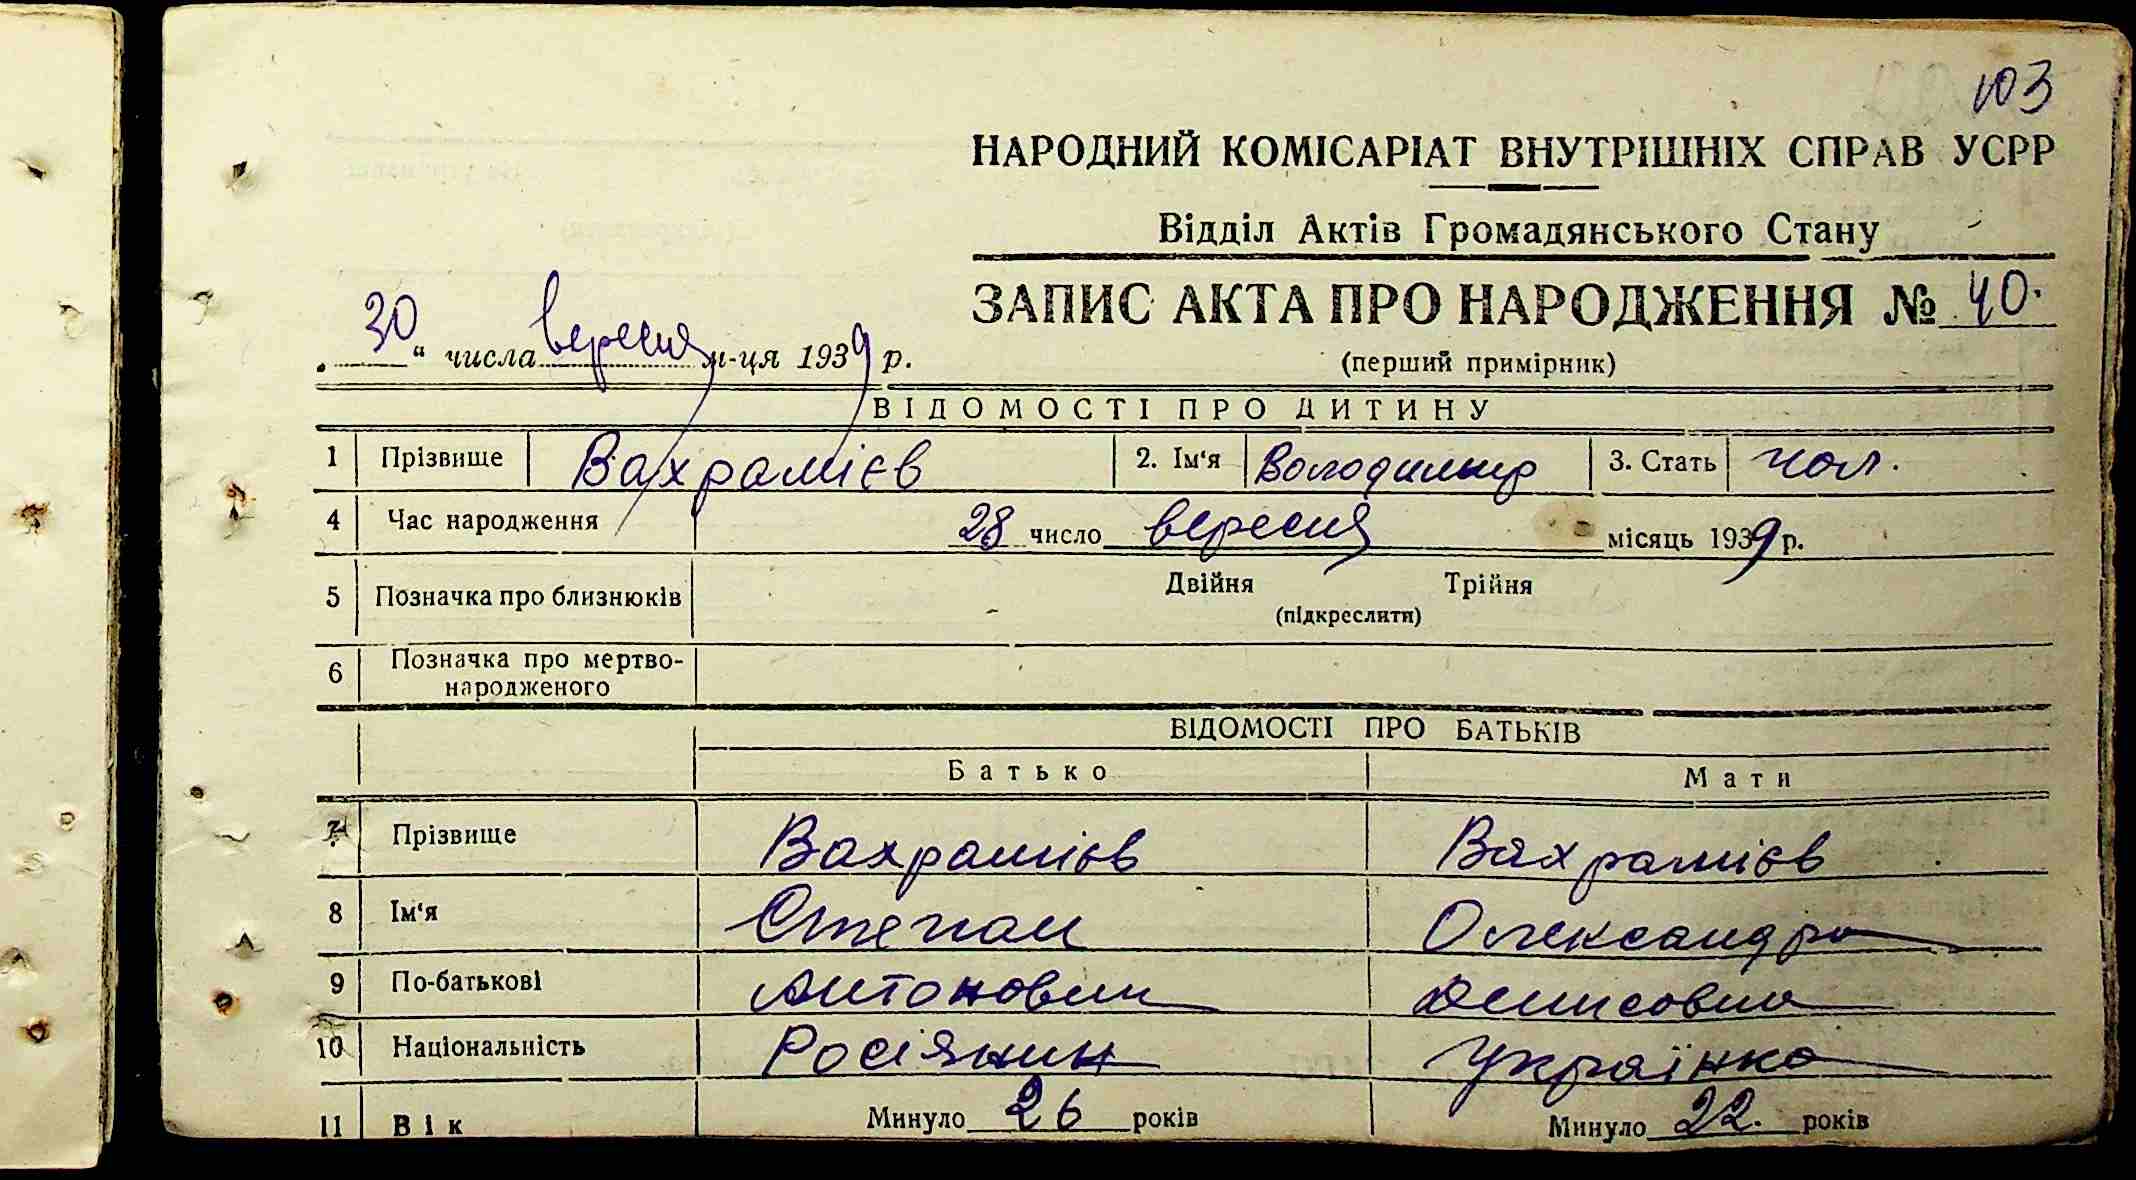 103
НАРОДНИЙ КОМІСАРІАТ ВНУТРІШНІХ СПРАВ УСРР
Відділ Актів Громадянського Стану
ЗАПИС АКТА ПРО НАРОДЖЕННЯ № 40.
„30“ числа вересня м-ця 1939 р.
(перший примірник)
ВІДОМОСТІ ПРО ДИТИНУ
1 Прізвище Вахрамієв 2. Ім‘я Володимир 3. Стать чол.
4 Час народження 28 число вересня місяць 1939 р.
5 Позначка про близнюків - Двійня Трійня
(підкреслити)
6 Позначка про мертво-
народженого
ВІДОМОСТІ ПРО БАТЬКІВ
Батько Мати
7 Прізвище Вахрамієв Вахрамієв
8 Ім‘я Степан Олександра
9 По-батькові Антонович Денисовна
10 Національність Росіянин Українка
11 Вік Минуло 26 років Минуло 22. років